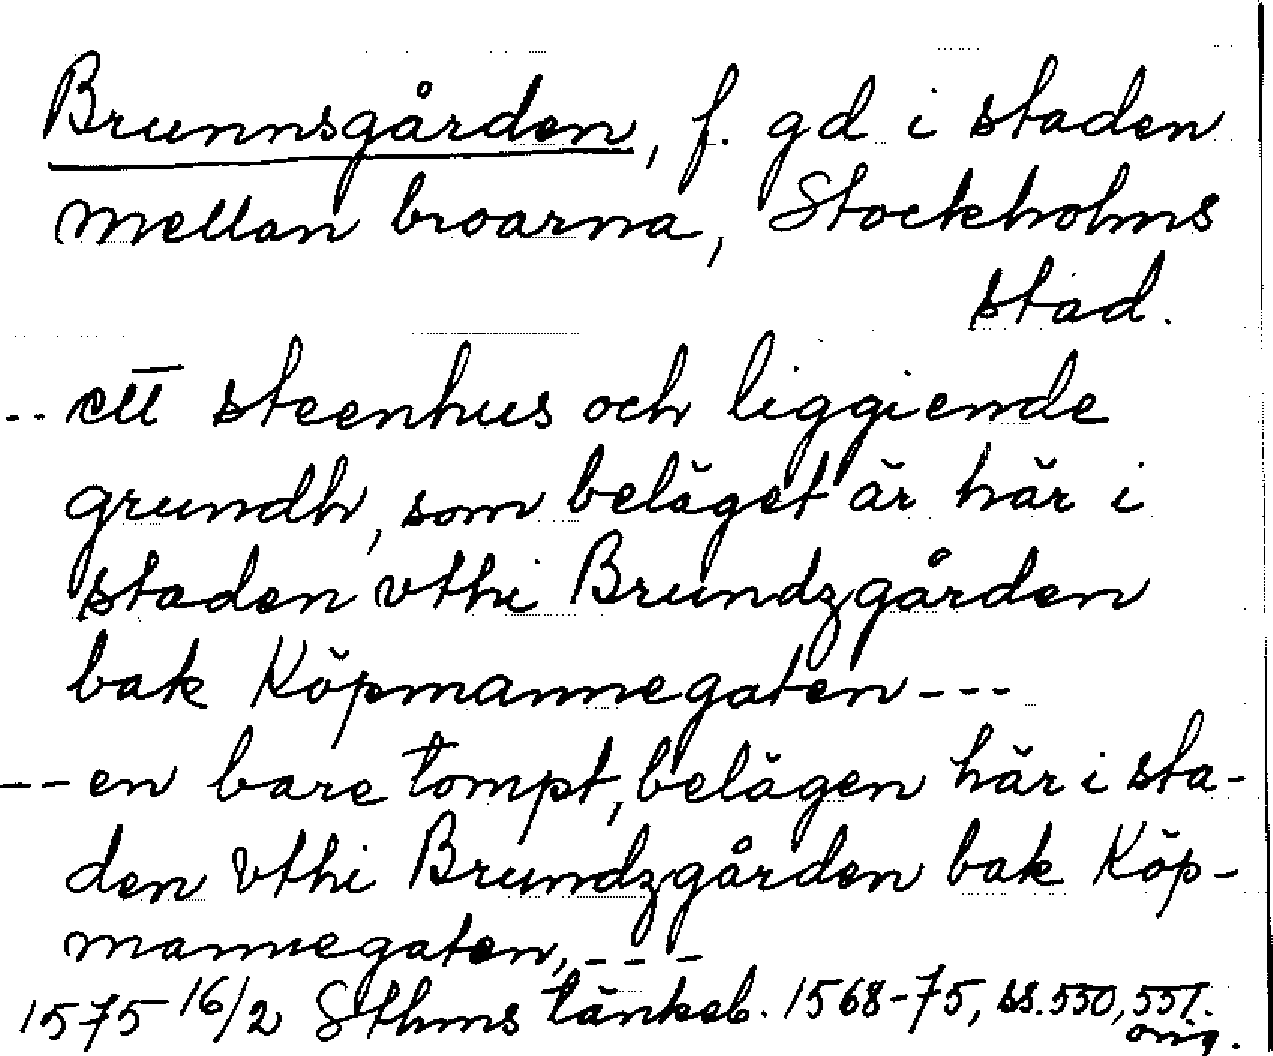 Brunnsgården, f. gd i staden
mellan broarna, Stockholms
stad.
-- ett steenhus och liggiende
grundh, som beläget är här i
staden vthi Brundzgården
bak Köpmannegaten ---
-- en bare tompt, belägen här i sta-
den vthi Brundzgården bak Köp-
mannegaten, ---
1575 16/2 Sthms tänkeb. 1568-75, ss. 550, 551.
orig.